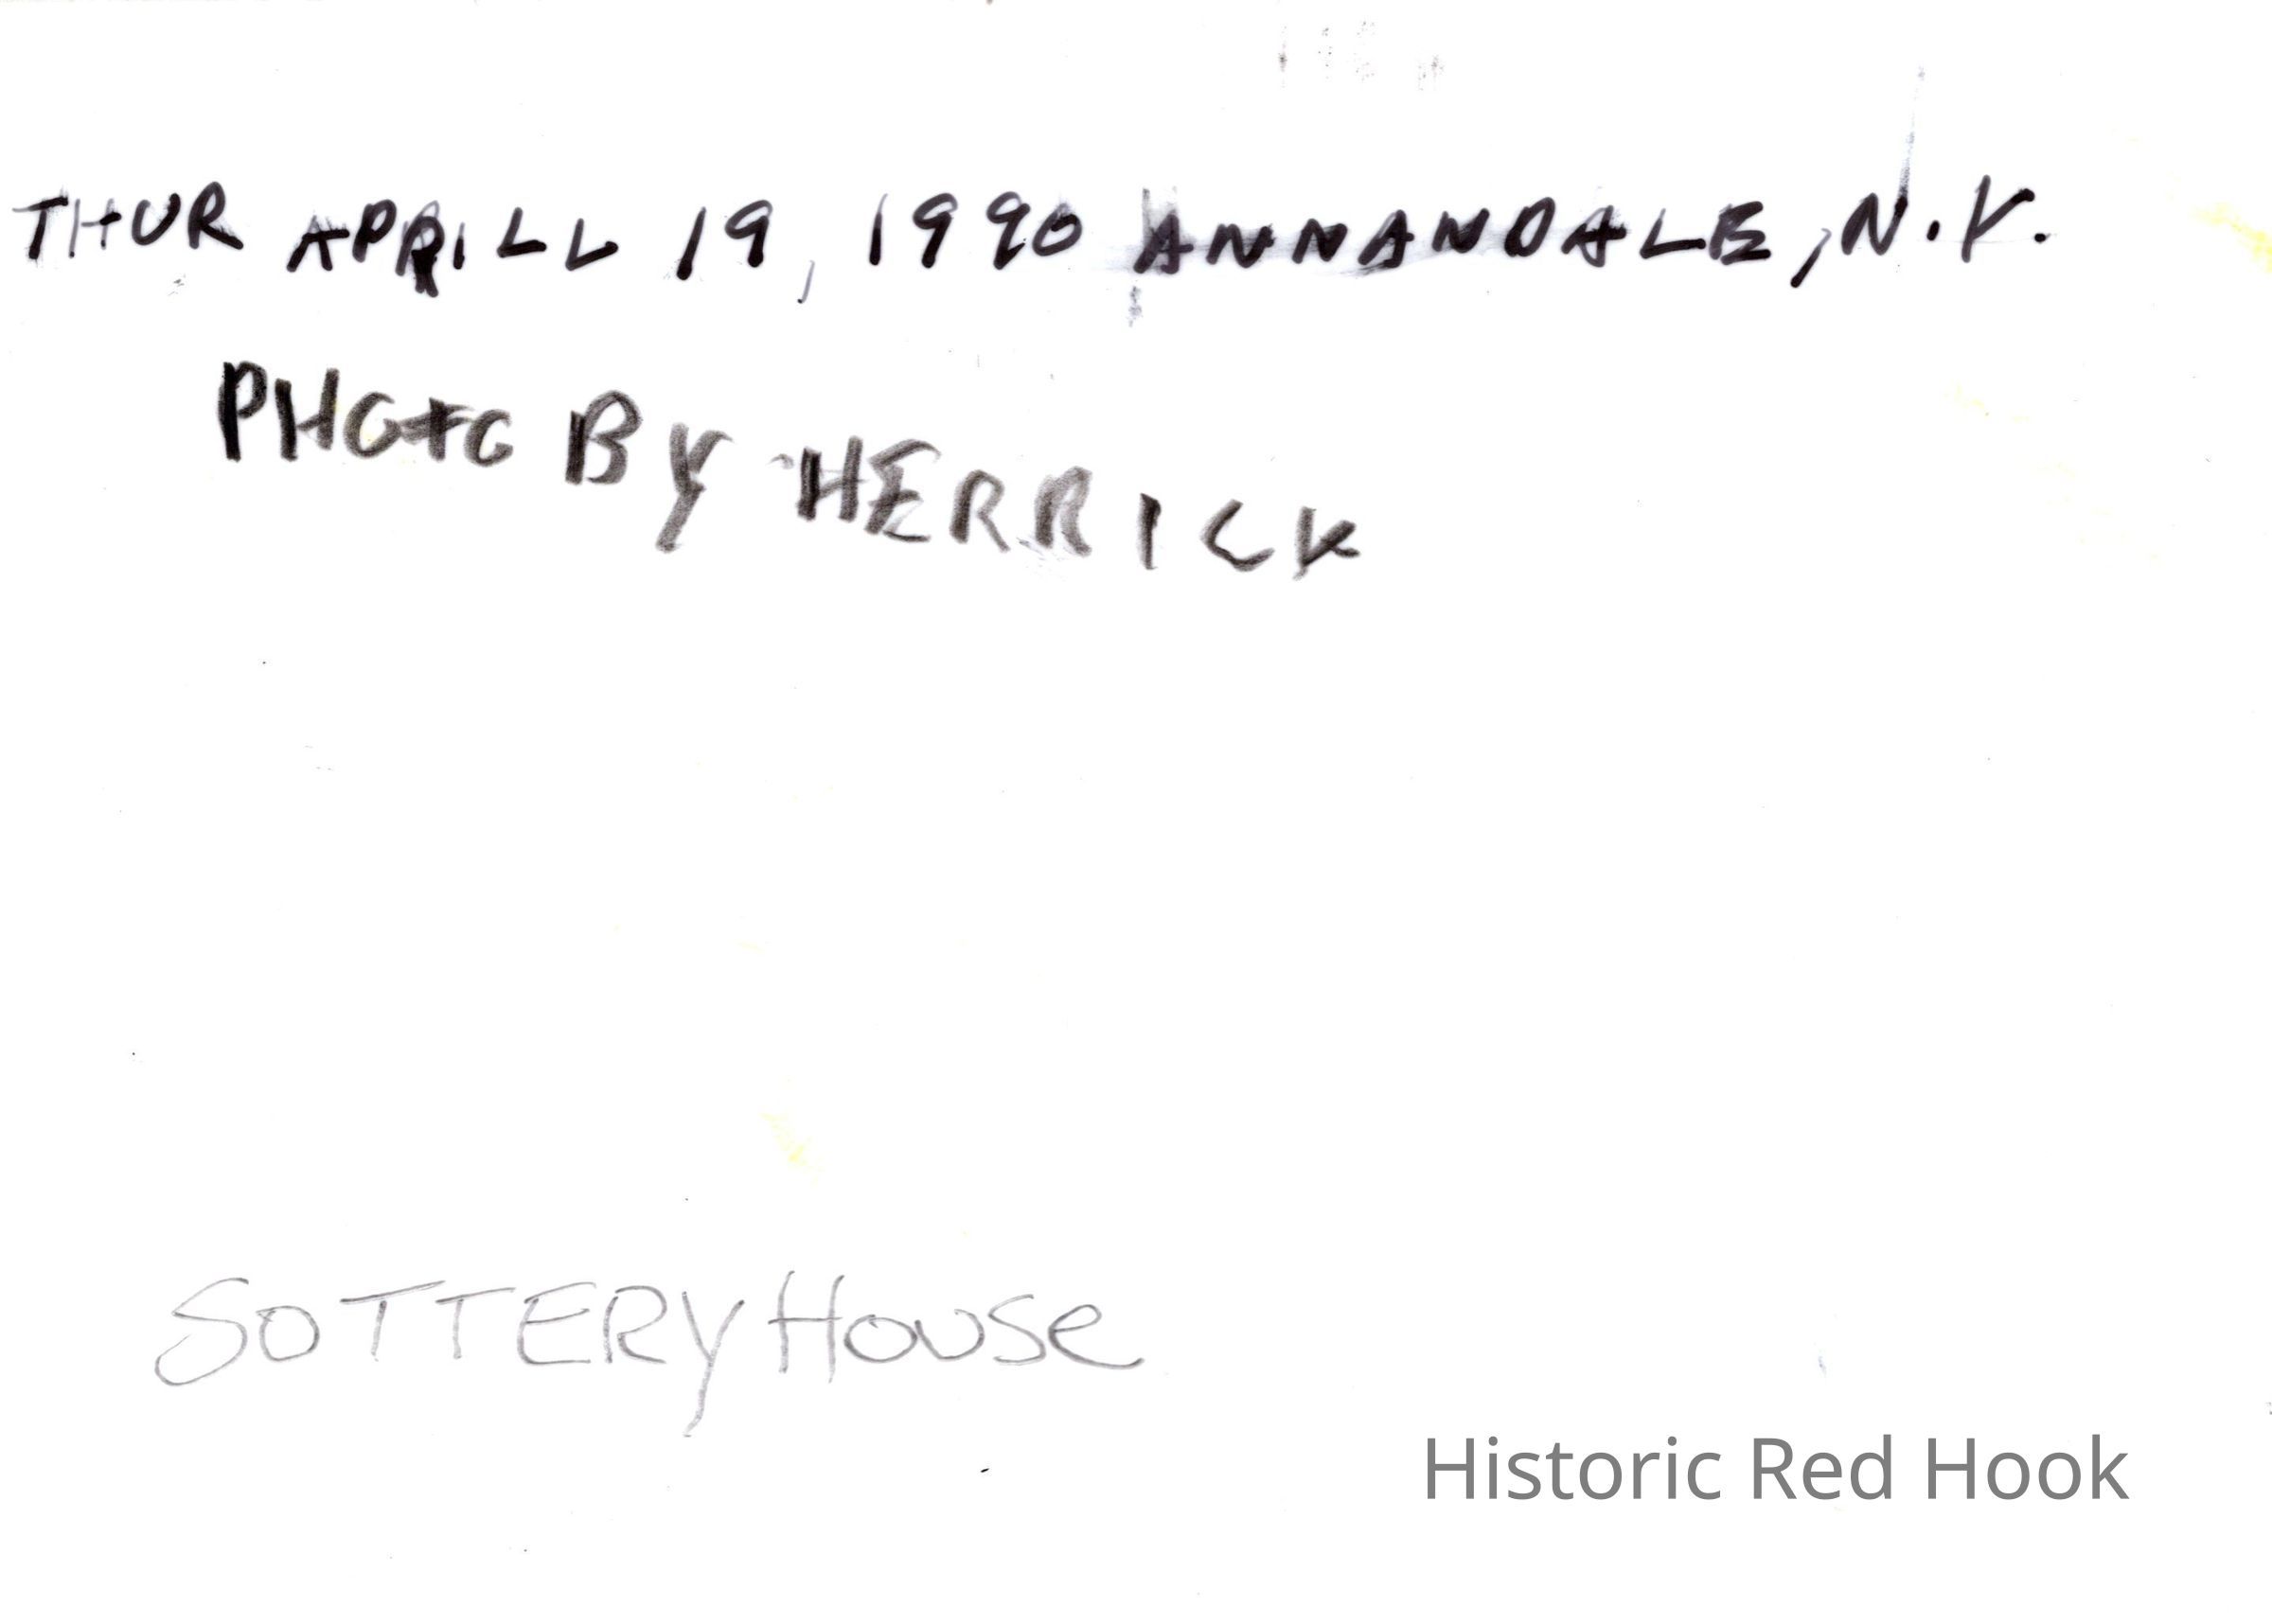 THUR APRILL 19, 1990 ANNANDALE, N.Y.
PHOTO BY HERRICK
SOTTERY HOUSE
Historic Red Hook